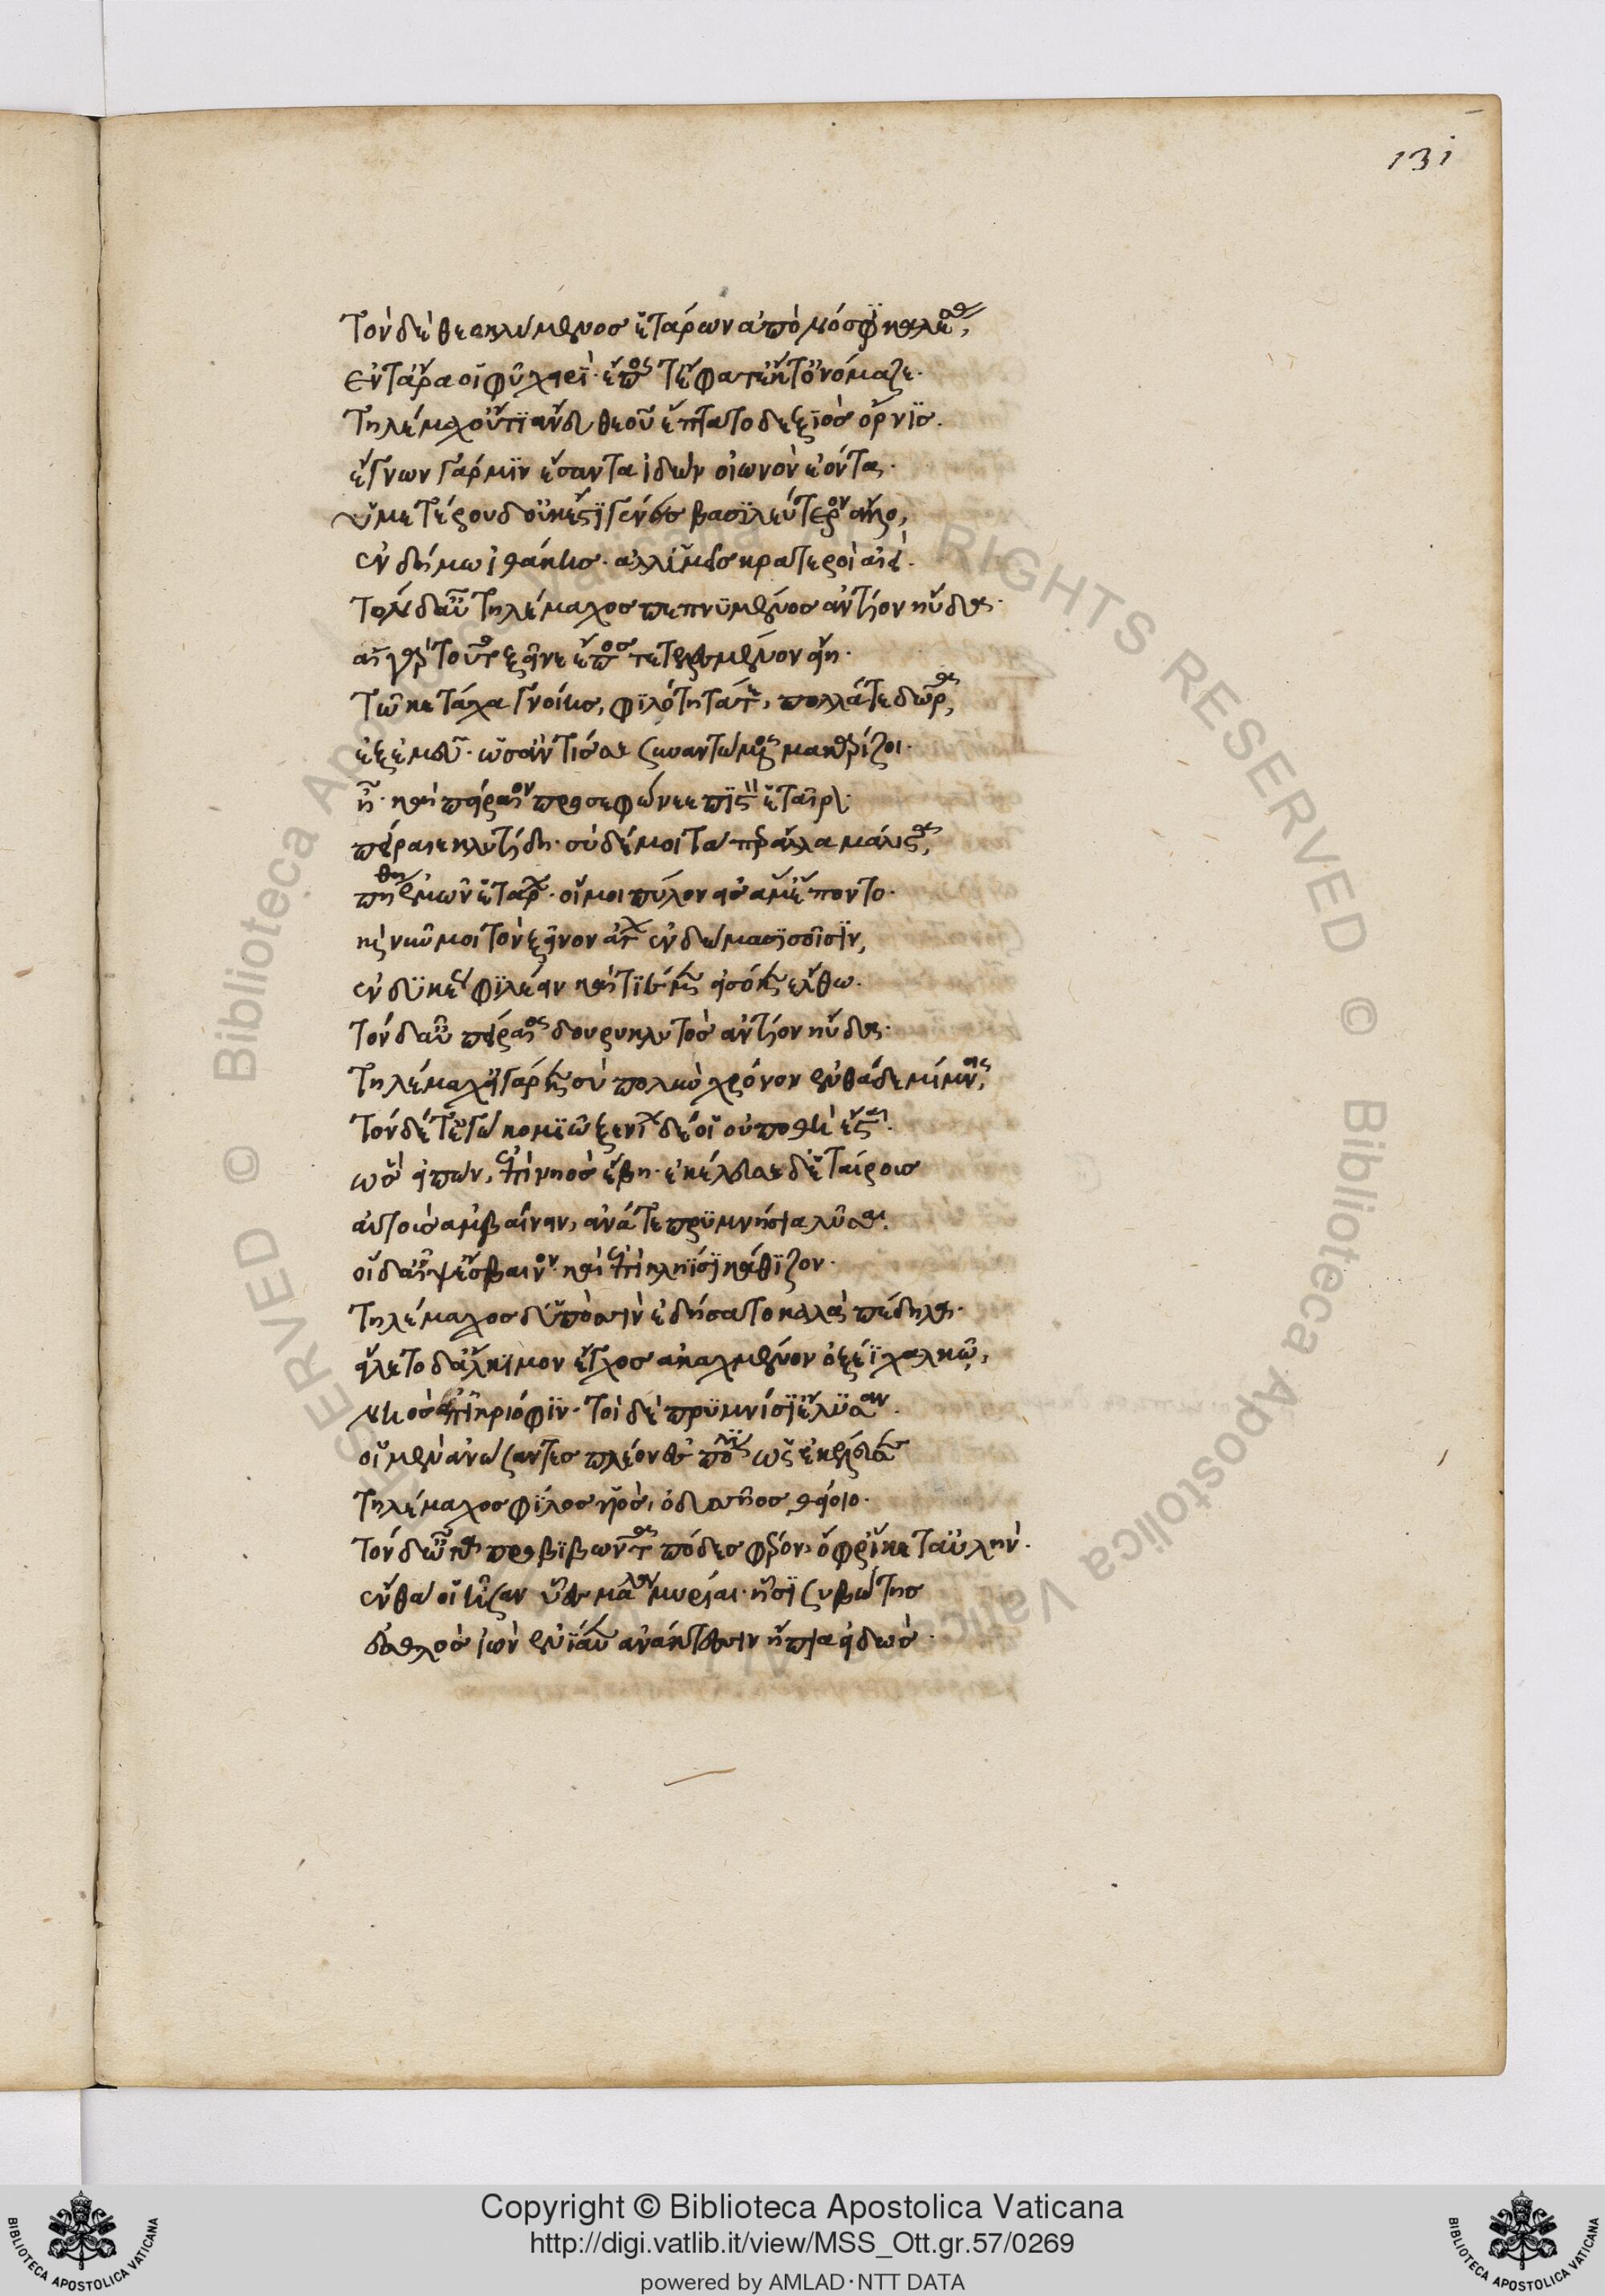 131
Τὸν δὲ θεοκλύμενος ἑτάρων ἀπὸ νόσφι καλέσας,
ἔν τ' ἄρα οἱ φῦ χειρὶ· ἔπος τ' ἔφατ' ἔκ τ' ὀνόμαζε.
Τηλέμαχ' οὔτι ἄνευ θεοῦ ἔπτατο δεξιὸς ὄρνις.
ἔγνων γάρ μιν ἔσαντα ἰδὼν οἰωνὸν ἐόντα.
ὑμετέρου δ' οὐκ ἔστι γένος βασιλεύτερον ἄλλο,
ἐν δήμω ἰθάκης. ἀλλ' ὑμεῖς κρατεροὶ αἰεί.
Τὸν δ' αὖ Τηλέμαχος πεπνυμένος ἀντίον ηὔδα.
αἲ γὰρ τοῦτο ξεῖνε ἔπος τετελεσμένον εἴη.
Τῶ κε τάχα γνοίης, φιλότητά τε, πολλά τε δῶρα,
ἐξ ἐμεῦ. ὡς ἄν τίς σε συναντώμενος μακαρίζοι.
ἦ. καὶ πείραιον προσεφώνεε πιστὸν ἑταῖρον.
πείραιε κλυτίδη. σὺ δέ μοι τά περ ἄλλα μάλιστα,
πείθη ἐμῶν ἑτάρων. οἵ μοι πύλον εἰς ἅμ' ἕποντο.
καὶ νῦν μοι τὸν ξεῖνον ἄγων ἐν δώμασι σοῖσιν,
ἐνδυκέως φιλέειν καὶ τιέμεν εἰσόκεν ἔλθω.
Τὸν δ' αὖ πείραιος δουρικλυτὸς ἀντίον ηὔδα.
Τηλέμαχ' εἰ γάρ κεν σὺ πολὺν χρόνον ἐνθάδε μίμνοις,
Τόνδε τ' ἐγὼ κομιῶ ξενίων δέ οἱ οὐ ποθὴ ἔσται.
ὣς εἰπὼν, ἐπὶ νηὸς ἔβη. ἐκέλευσε δ' ἑταίροις
αὐτοῖς ἀμβαίνειν, ἀνά τε πρυμνήσια λῦσαι.
οἱ δ' αἶψ' εἴσβαινον. καὶ ἐπὶ κληῖσι κάθιζον.
Τηλέμαχος δ' ὑπὸ ποσσὶν ἐδήσατο καλὰ πέδιλα.
εἵλετο δ' ἄλκιμον ἔγχος ἀκαχμένον ὀξέϊ χαλκῶ,
νηὸς ἀπ' ἰκριόφιν. τοὶ δὲ πρυμνήσι' ἔλυσαν.
οἱ μὲν ἀνώσαντες πλέον ἐς πόλιν ὡς ἐκέλευσε
Τηλέμαχος φίλος υἱὸς, ὀδυσσῆος θείοιο.
Τὸν δ' ὦκα προβιβῶντα πόδες φέρον, ὄφρ' ἵκετ' αὐλήν.
ἔνθα οἱ ἦσαν ὕες μάλα μυρίαι. ᾗσι συβώτης
ἐσθλὸς ἐὼν ἐνίαυεν ἀνάκτεσιν ἤπια εἰδώς.
Copyright © Biblioteca Apostolica Vaticana
http://digi.vatlib.it/view/MSS_Ott.gr.57/0269
powered by AMLAD·NTT DATA